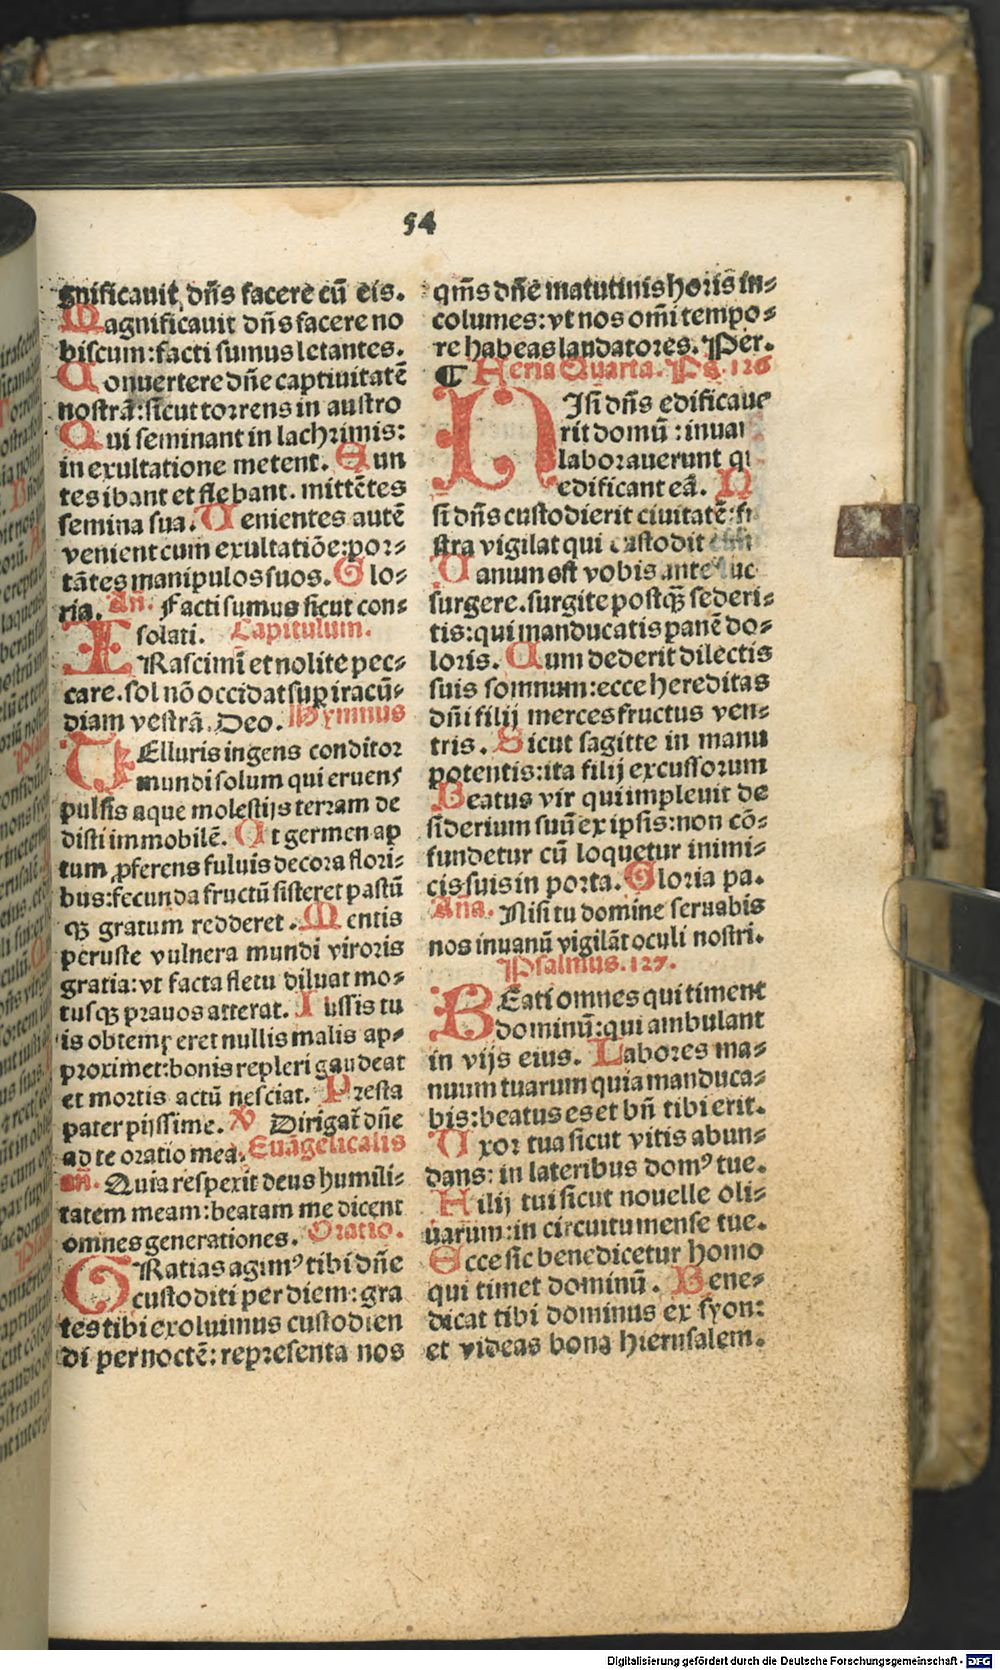 54
gnificauit dñs facere cū eis.
Magnificauit dñs facere no
biscum: facti sumus letantes.
Conuertere dñe captiuitatē
nostrā: sicut torrens in austro
Qui seminant in lachrimis:
in exultatione metent. Eun
tes ibant et flebant. mittētes
semina sua. Uenientes autē
venient cum exultatiōe: por⸗
tātes manipulos suos. Glo⸗
ria. Añ. Facti sumus sicut con⸗
solati. Capitulum.
IRascimī et nolite pec⸗
care. sol nō occidat suꝑ iracū⸗
diam vestrā. Deo. Hymnus
TElluris ingens conditor
mundi solum qui eruens
pulsis aque molestijs terram de
disti immobilē. Ut germen ap
tum ꝓferens fuluis decora flori⸗
bus: fecunda fructū sisteret pastū
qꝫ gratum redderet. Mentis
peruste vulnera mundi viroris
gratia: vt facta fletu diluat mo⸗
tusqꝫ prauos atterat. Iussis tu
is obtemperet nullis malis ap⸗
proximet: bonis repleri gaudeat
et mortis actū nesciat. Presta
pater pijssime. ℣ Dirigat̄ dñe
ad te oratio mea. Euāgelicalis
añ. Quia respexit deus humili⸗
tatem meam: beatam me dicent
omnes generationes. Oratio.
GRatias agimꝰ tibi dñe
custoditi per diem: gra
tes tibi exoluimus custodien
di per noctē: representa nos
qm̄s dñe matutinis horis in⸗
columes: vt nos om̄i tempo⸗
re habeas laudatores. Per.
¶ Feria Quarta. Ps. 126
NIsi dñs edificaue
rit domū: inua
laborauerunt q
edificant eā. N
si dñs custodierit ciuitatē: fr
stra vigilat qui custodit eam
Uanum est vobis ante luc
surgere. surgite postqꝫ̄ sederi⸗
tis: qui manducatis panē do⸗
loris. Cum dederit dilectis
suis somnum: ecce hereditas
dñi filij merces fructus ven⸗
tris. Sicut sagitte in manu
potentis: ita filij excussorum
Beatus vir qui impleuit de
siderium suū ex ipsis: non cō⸗
fundetur cū loquetur inimi⸗
cis suis in porta. Gloria pa.
Aña. Nisi tu domine seruabis
nos inuanū vigilāt oculi nostri.
Psalmus. 127.
BEati omnes qui timent
dominū: qui ambulant
in vijs eius. Labores ma⸗
nuum tuarum quia manduca⸗
bis: beatus es et bñ tibi erit.
Uxor tua sicut vitis abun⸗
dans: in lateribus domꝰ tue.
Filij tui sicut nouelle oli⸗
uarum: in circuitu mense tue.
Ecce sic benedicetur homo
qui timet dominū. Bene⸗
dicat tibi dominus ex syon:
et videas bona hierusalem.
Digitalisierung gefördert durch die Deutsche Forschungsgemeinschaft - DFG